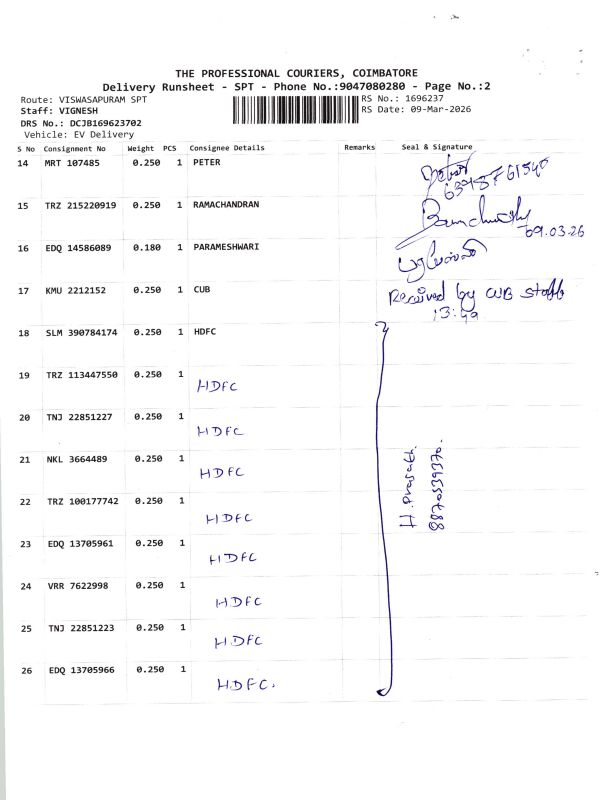 THE PROFESSIONAL COURIERS, COIMBATORE
Delivery Runsheet - SPT - Phone No.:9047080280 - Page No.:2
Route: VISWASAPURAM SPT
Staff: VIGNESH
DRS No.: DCJB169623702
Vehicle: EV Delivery
RS No.: 1696237
RS Date: 09-Mar-2026
S No Consignment No Weight PCS Consignee Details Remarks Seal & Signature
14 MRT 107485 0.250 1 PETER
15 TRZ 215220919 0.250 1 RAMACHANDRAN
09.03.26
16 EDQ 14586089 0.180 1 PARAMESHWARI
17 KMU 2212152 0.250 1 CUB Received by CUB staff
18 SLM 390784174 0.250 1 HDFC
19 TRZ 113447550 0.250 1 HDFC
20 TNJ 22851227 0.250 1 HDFC
21 NKL 3664489 0.250 1 HDFC
22 TRZ 100177742 0.250 1 HDFC
23 EDQ 13705961 0.250 1 HDFC
24 VRR 7622998 0.250 1 HDFC
25 TNJ 22851223 0.250 1 HDFC
26 EDQ 13705966 0.250 1 HDFC.
H. Prasath.
8870539370.